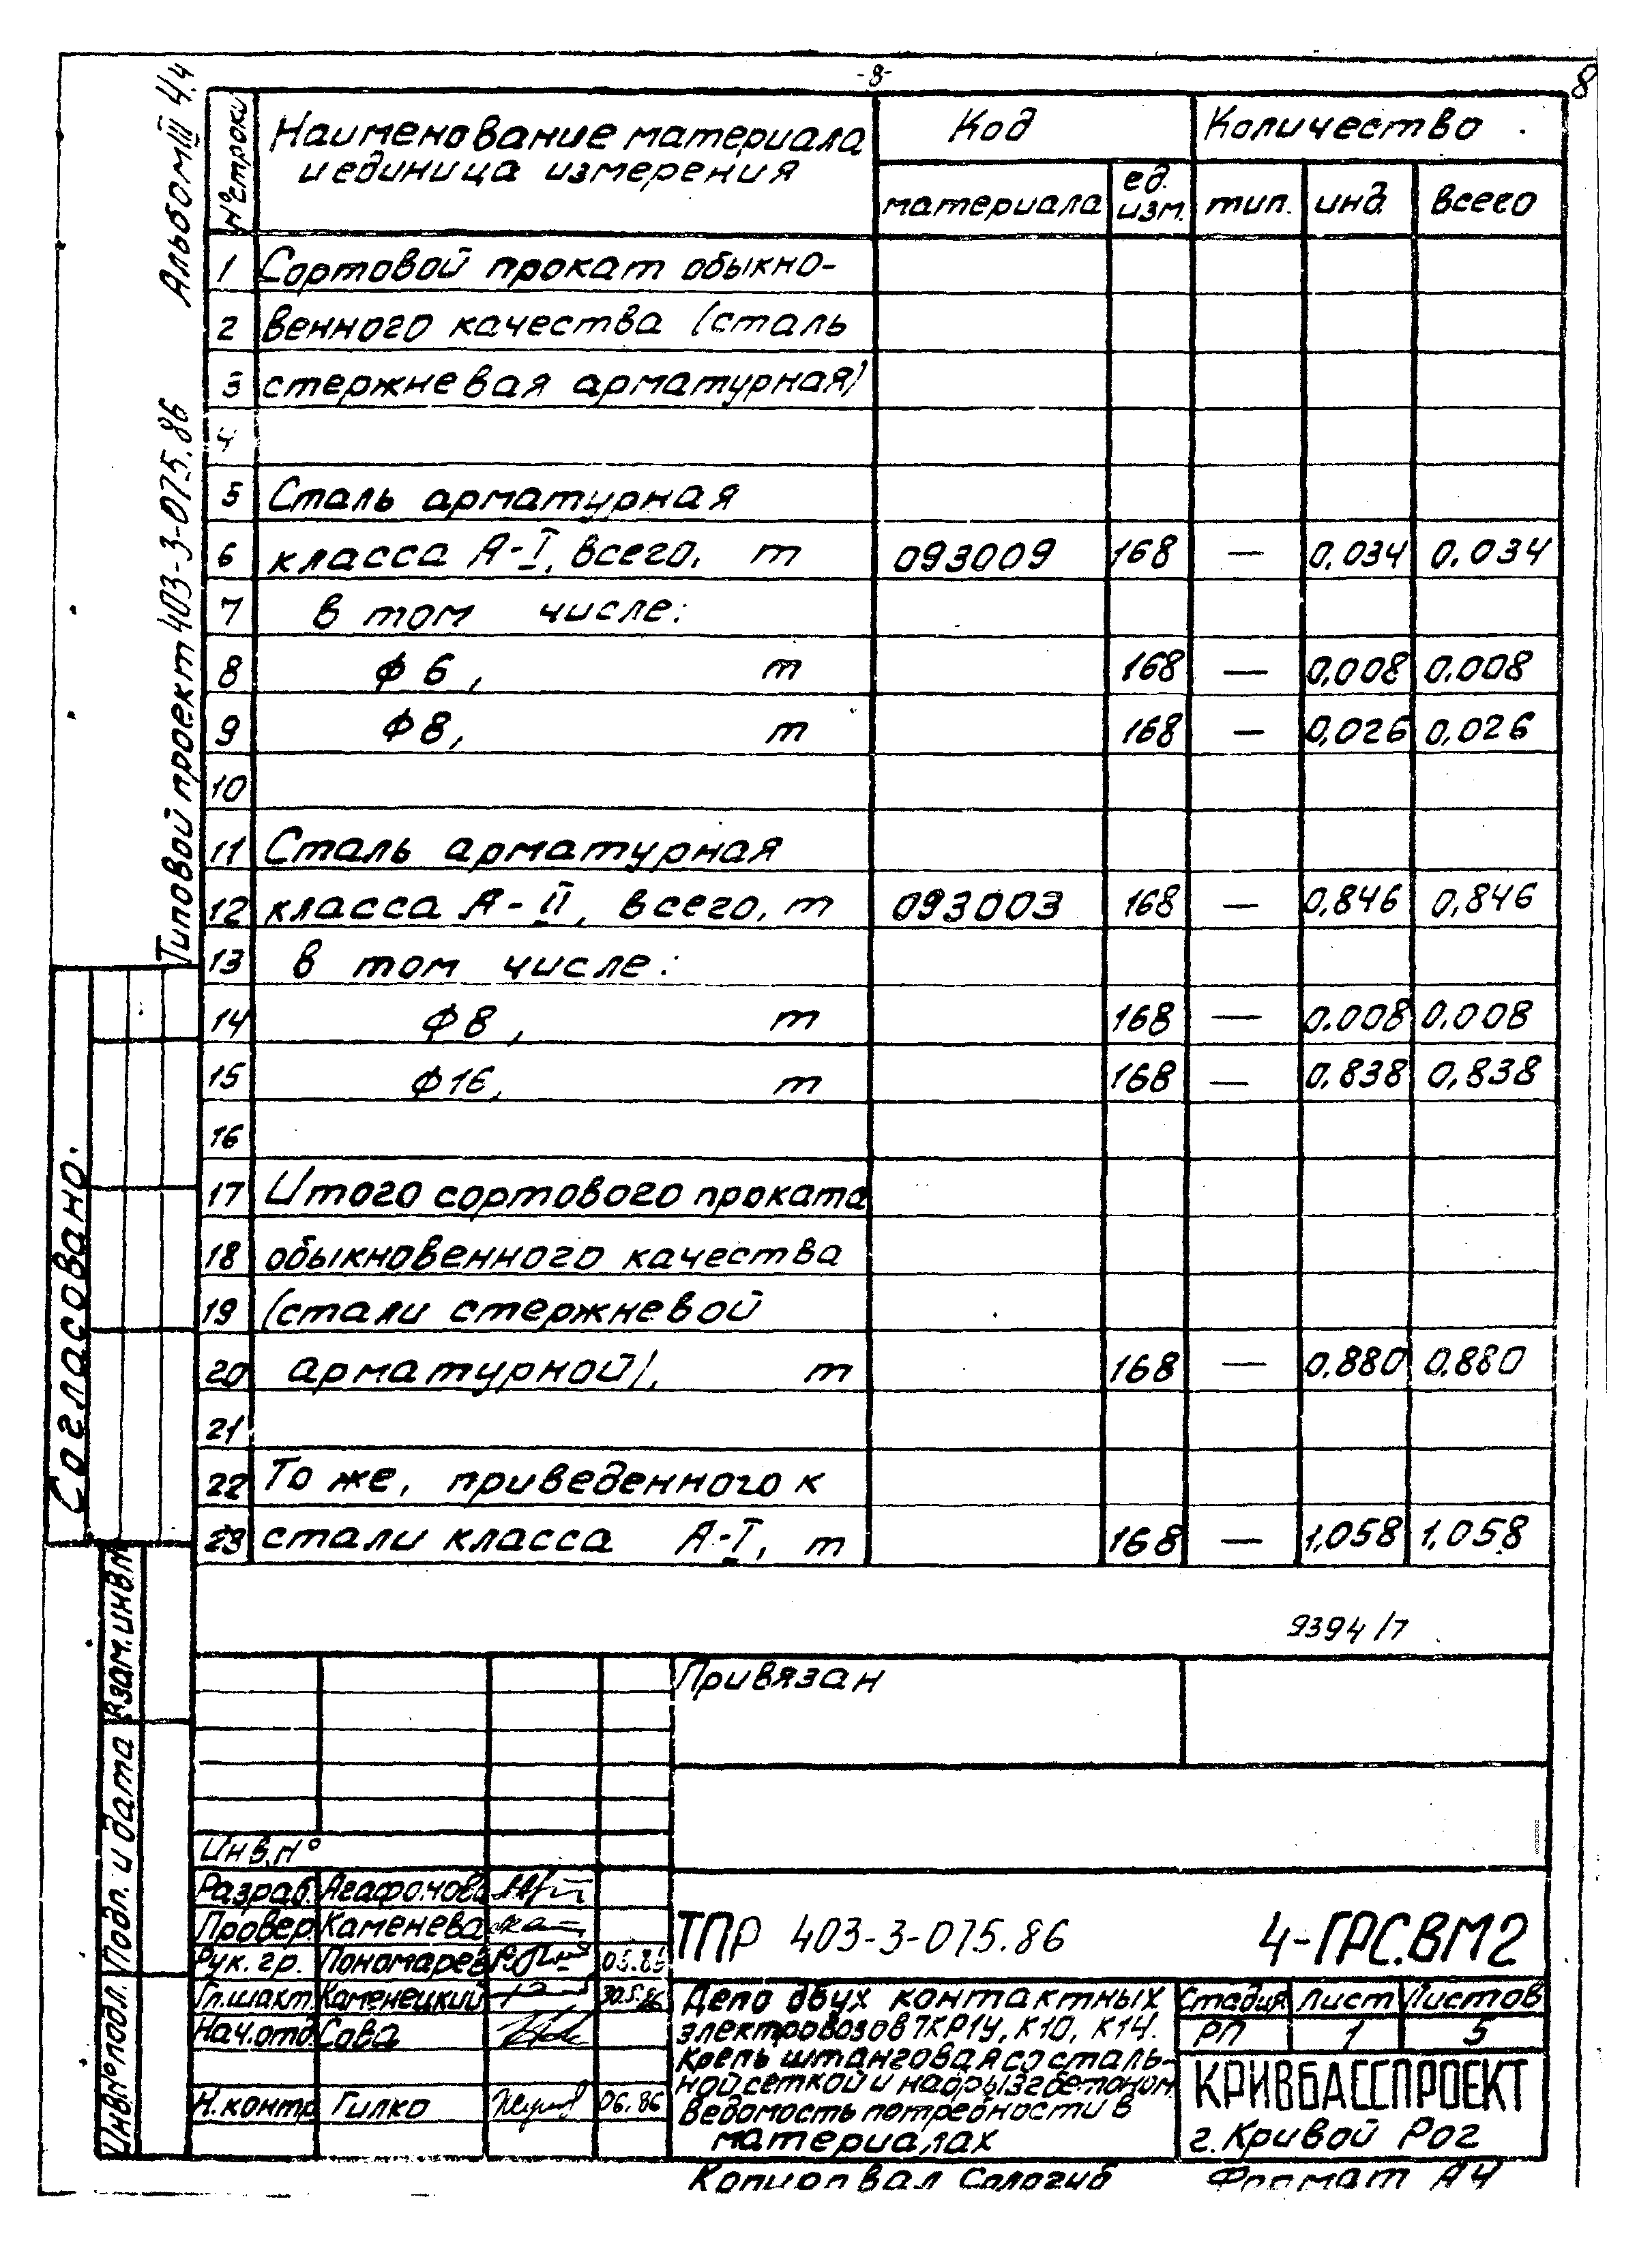 -8-
8
Альбом III ч.4
Типовой проект 403-3-075.86
Согласовано.
Взам. инв. №
Подп. и дата
Инв. № подл.
№ строки
Наименование материала и единица измерения
Код
Количество
материала
ед. изм.
тип.
инд.
всего
1 Сортовой прокат обыкно-
2 венного качества (сталь
3 стержневая арматурная)
4
5 Сталь арматурная
6 класса А-I, всего, т 093009 168 — 0,034 0,034
7 в том числе:
8 ф 6, т 168 — 0,008 0,008
9 ф 8, т 168 — 0,026 0,026
10
11 Сталь арматурная
12 класса А-II, всего, т 093003 168 — 0,846 0,846
13 в том числе:
14 ф 8, т 168 — 0,008 0,008
15 ф 16, т 168 — 0,838 0,838
16
17 Итого сортового проката
18 обыкновенного качества
19 (стали стержневой
20 арматурной), т 168 — 0,880 0,880
21
22 То же, приведенного к
23 стали класса А-I, т 168 — 1,058 1,058
9394/7
Привязан
Инв. №
Разраб. Агафонова
Провер. Каменева
Рук. гр. Пономарев
Гл. шахт. Каменецкий 30.5.86
Нач. отд. Сова
Н. контр Гилко 06.86
ТПР 403-3-075.86
4-ГРС.ВМ2
Депо двух контактных
электровозов 7КР1У, К10, К14.
Крепь штанговая со сталь-
ной сеткой и набрызгбетоном
Ведомость потребности в
материалах
Стадия Лист Листов
РП 1 5
КРИВБАССПРОЕКТ
г. Кривой Рог
Копировал Сологуб
Формат А4